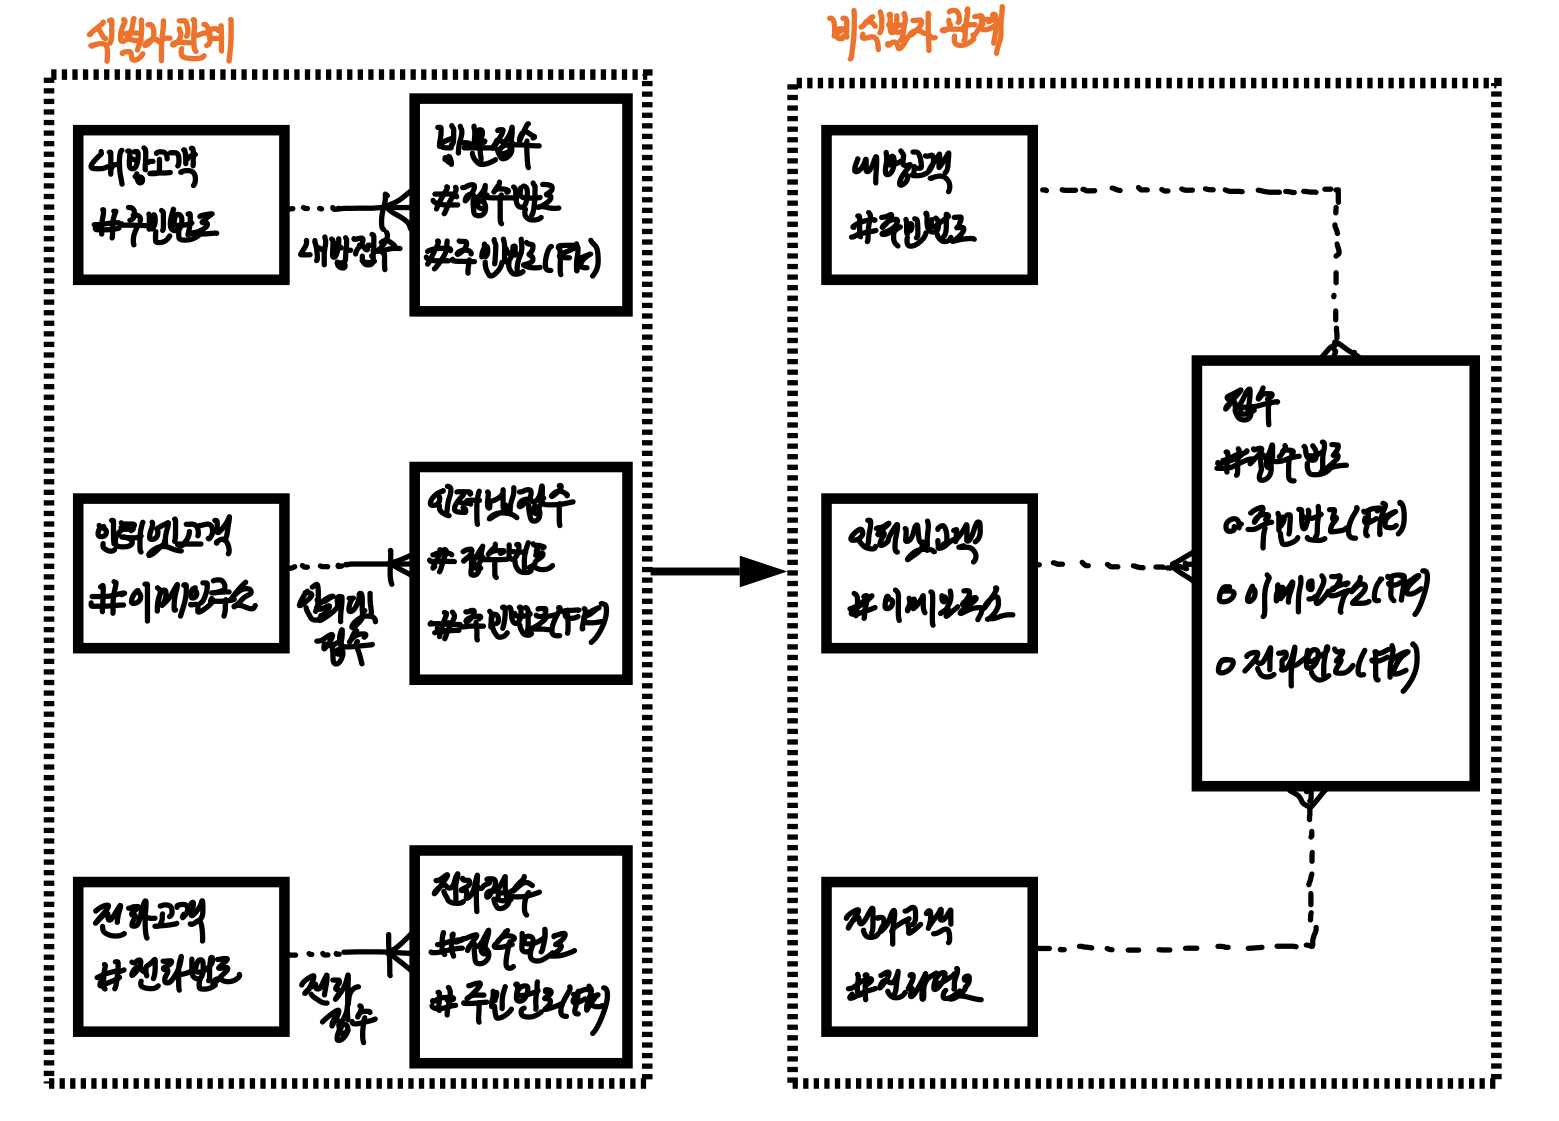 식별자 관계
내방고객
#주민번호
내방접수
방문접수
#접수번호
#주민번호(FK)
인터넷고객
#이메일주소
인터넷
접수
인터넷접수
#접수번호
#주민번호(FK)
전화고객
#전화번호
전화
접수
전화접수
#접수번호
#주민번호(FK)
비식별자 관계
내방고객
#주민번호
인터넷고객
#이메일주소
전화고객
#전화번호
접수
#접수번호
o주민번호(FK)
o이메일주소(FK)
o전화번호(FK)